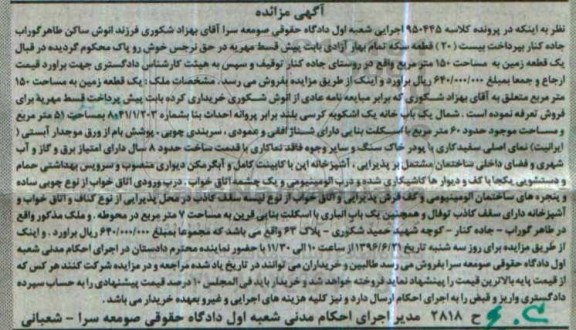 آگهی مزائده
نظر به اینکه در پرونده کلاسه ۹۵۰۴۴۵ اجرایی شعبه اول دادگاه حقوقی صومعه سرا آقای بهزاد شکوری فرزند انوش ساکن طاهرگوراب
جاده کنار بپرداخت بیست (۲۰) قطعه سکه تمام بهار آزادی بابت پیش قسط مهریه در حق نرجس خوش رو پاک محکوم گردیده در قبال
آن یک قطعه زمین به مساحت ۱۵۰ متر مربع واقع در روستای جاده کنار توقیف و سپس به هیئت کارشناس دادگستری جهت برآورد قیمت
ارجاع و جمعا بمبلغ ۶۴۰/۰۰۰/۰۰۰ ریال برآورد و اینک از طریق مزایده بفروش می رسد. مشخصات ملک: یک قطعه زمین به مساحت ۱۵۰
متر مربع متعلق به آقای بهزاد شکوری که برابر مبایعه نامه عادی از انوش شکوری خریداری کرده بابت پیش پرداخت قسط مهریه برای
فروش تعرفه نموده است. شمال یک باب خانه یک اشکوبه کرسی بلند برابر پروانه احداث بنا بشماره ۸۰۴۱/۱/۲۰۳ بمساحت (۵ متر مربع
و مساحت موجود حدود ۶۰ متر مربع با اسکلت بنایی دارای شناژ افقی و عمودی، سربندی چوبی، پوشش بام از ورق موجدار آبستی (
ایرانیت) نمای اصلی سفیدکاری با پودر خاک سنگ و سایر وجوه فاقد نماکاری با قدمت ساخت حدود ۸ سال دارای امتیاز برق و گاز و آب
شهری و فضای داخلی ساختمان مشتمل بر پذیرایی، آشپزخانه اپن با کابینت کامل و آبگرمکن دیواری منصوب و سرویس بهداشتی حمام
و دستشویی یکجا با کف و دیوار ها کاشیکاری شده و درب آلومینیومی و یک چشمه اتاق خواب. درب ورودی اتاق خواب از نوع چوبی ساده
و پنجره های ساختمان آلومینیومی و کف فرش پذیرایی و اتاق خواب از نوع لیسه سقف کاذب در محل پذیرایی از نوع کناف و اتاق خواب و
آشپزخانه دارای سقف کاذب توفال و همچنین یک باب انباری با اسکلت بنایی قرین به مساحت ۷ متر مربع در محوطه. و ملک مذکور واقع
در طاهر گوراب – جاده کنار – کوچه شهید حمید شکوری – پلاک ۶۳ واقع می باشد که مجموعا بمبلغ ۶۴۰/۰۰۰/۰۰۰ ریال برآورد. و اینک
از طریق مزایده برای روز سه شنبه تاریخ ۱۳۹۶/۶/۲۱ از ساعت ۱۰ الی ۱۱/۳۰ با حضور نماینده محترم دادستان در اجرای احکام مدنی شعبه
اول دادگاه حقوقی صومعه سرا بفروش می رسد طالبین و خریداران می توانند در تاریخ یاد شده مراجعه و در مزایده شرکت کنند هر کس که
از قیمت پایه بالاترین قیمت را پیشنهاد نماید فروخته خواهد شد و خریدار باید فی المجلس ۱۰ درصد قیمت پیشنهادی را به حساب سپرده
دادگستری واریز و قبض را به اجرای احکام ارسال دارد و نیز کلیه هزینه های اجرایی و غیرو بعهده خریدار می باشد.
ح ۲۸۱۸ مدیر اجرای احکام مدنی شعبه اول دادگاه حقوقی صومعه سرا – شعبانی